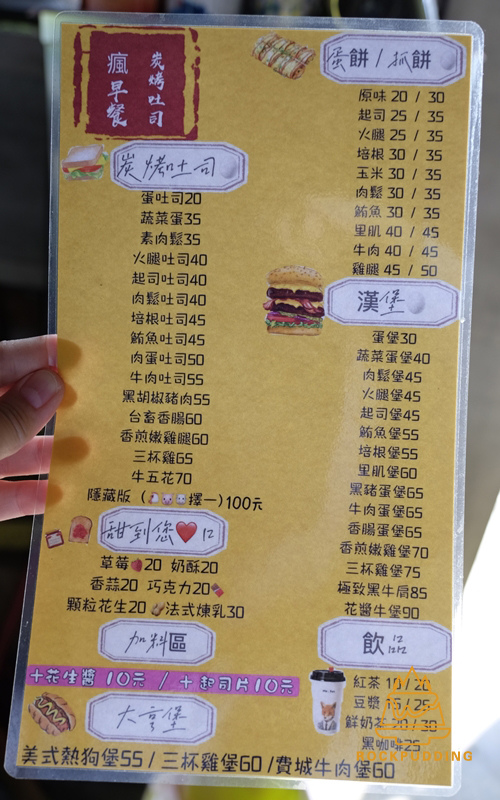 炭烤吐司
瘋早餐
炭烤吐司
蛋吐司20
蔬菜蛋35
素肉鬆35
火腿吐司40
起司吐司40
肉鬆吐司40
培根吐司45
鮪魚吐司45
肉蛋吐司50
牛肉吐司55
黑胡椒豬肉55
台畜香腸60
香煎嫩雞腿60
三杯雞65
牛五花70
隱藏版（擇一)100元
甜到您❤️
草莓20 奶酥20
香蒜20 巧克力20
顆粒花生20 法式煉乳30
加料區
+花生醬 10元 / +起司片10元
大亨堡
美式熱狗堡55 / 三杯雞堡60 /費城牛肉堡60
蛋餅 / 抓餅
原味 20 / 30
起司 25 / 35
火腿 25 / 35
培根 30 / 35
玉米 30 / 35
肉鬆 30 / 35
鮪魚 30 / 35
里肌 40 / 45
牛肉 40 / 45
雞腿 45 / 50
漢堡
蛋堡30
蔬菜蛋堡40
肉鬆堡45
火腿堡45
起司堡45
鮪魚堡55
培根堡55
里肌堡60
黑豬蛋堡65
牛肉蛋堡65
香腸蛋堡65
香煎嫩雞堡70
三杯雞堡75
極致黑牛肩85
花醬牛堡90
飲品
紅茶 10 / 20
豆漿 15 / 25
鮮奶茶 20 / 30
黑咖啡25
ROCKPUDDING